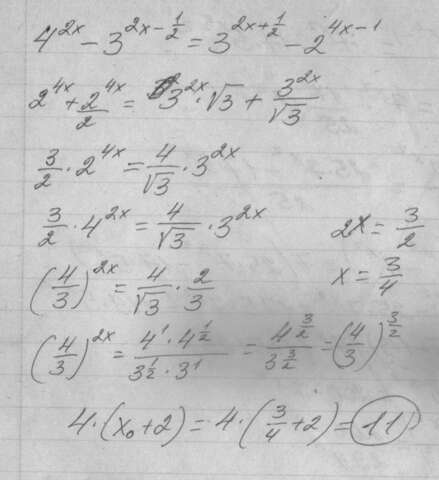 4^{2x} - 3^{2x - \frac{1}{2}} = 3^{2x + \frac{1}{2}} - 2^{4x - 1}
2^{4x} + \frac{2^{4x}}{2} = 3^{2x} \cdot \sqrt{3} + \frac{3^{2x}}{\sqrt{3}}
\frac{3}{2} \cdot 2^{4x} = \frac{4}{\sqrt{3}} \cdot 3^{2x}
\frac{3}{2} \cdot 4^{2x} = \frac{4}{\sqrt{3}} \cdot 3^{2x}
(\frac{4}{3})^{2x} = \frac{4}{\sqrt{3}} \cdot \frac{2}{3}
(\frac{4}{3})^{2x} = \frac{4^1 \cdot 4^{\frac{1}{2}}}{3^{\frac{1}{2}} \cdot 3^1} = \frac{4^{\frac{3}{2}}}{3^{\frac{3}{2}}} = (\frac{4}{3})^{\frac{3}{2}}
2x = \frac{3}{2}
x = \frac{3}{4}
4 \cdot (x_0 + 2) = 4 \cdot (\frac{3}{4} + 2) = 11